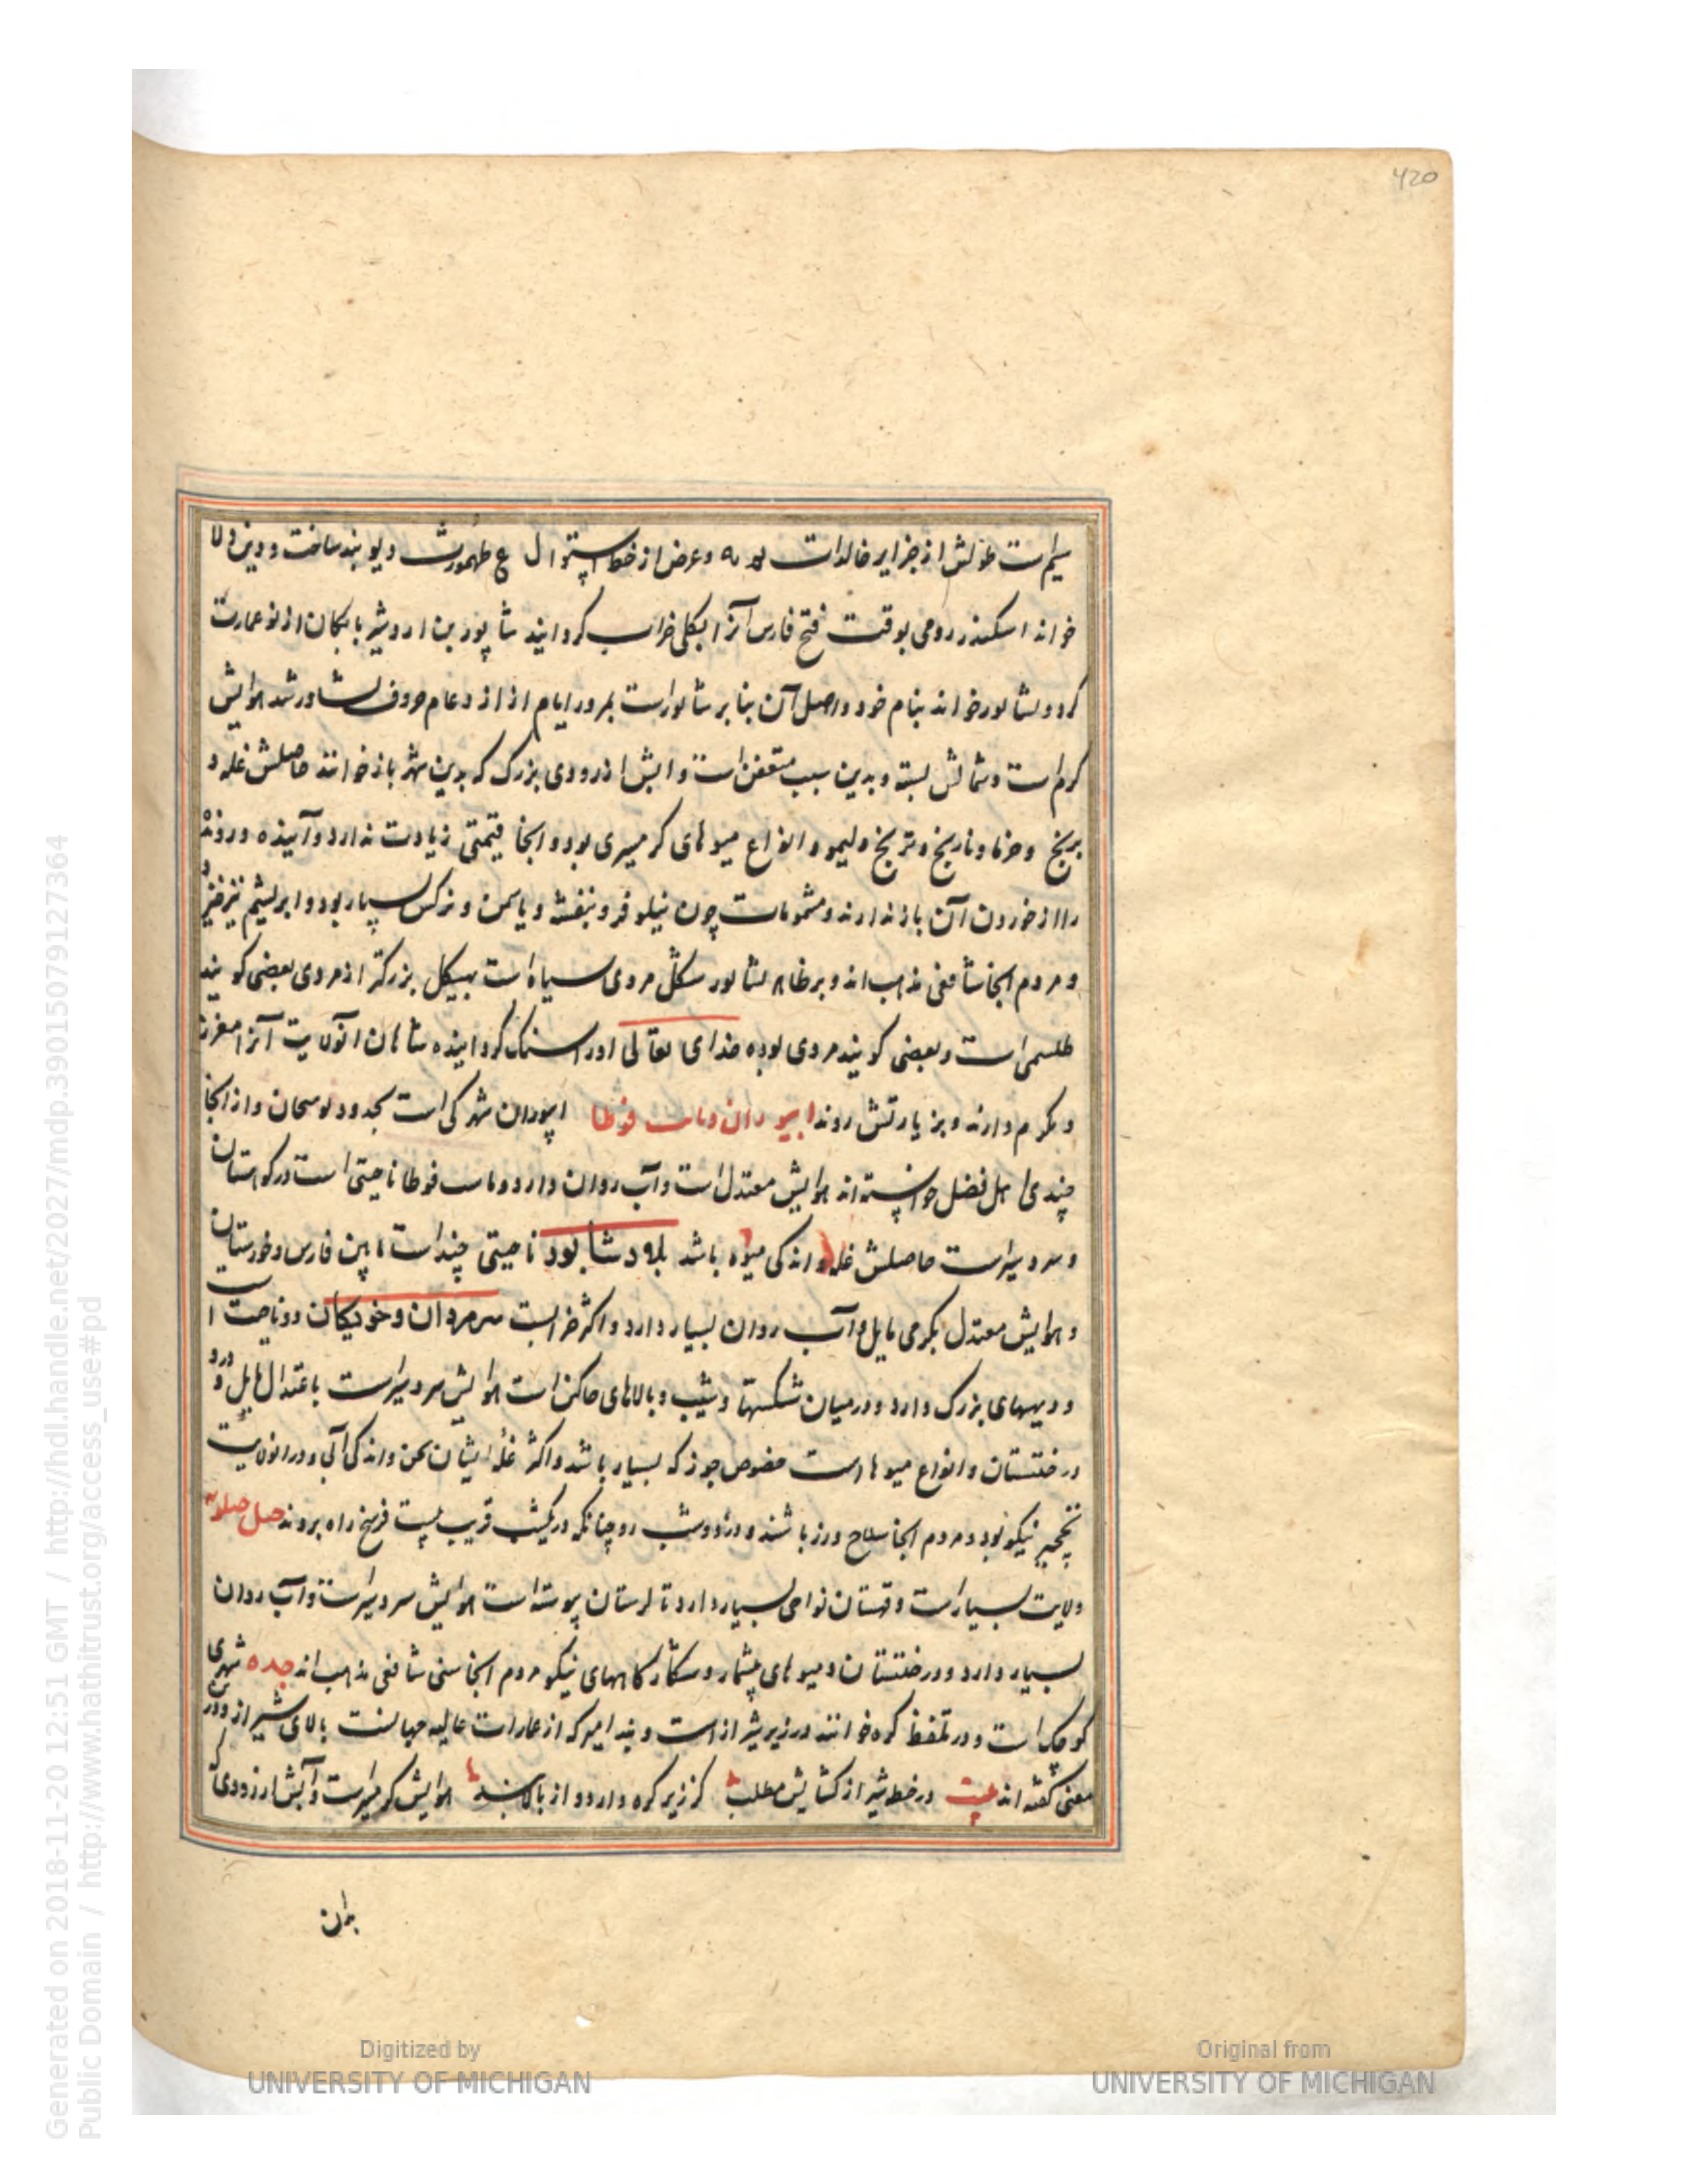 420
سیم است طولش از جزایر خالدات فو نه و عرض از خط استوا ل ع طهمورث دیو بند ساخت و دین دلا
خواند اسکندر رومی بوقت فتح فارس آنرا بکلی خراب کردانید شاپور بن اردشیر بابکان از نو عمارت
کرد و بشاپور خواند بنام خود و اصل آن بنا بر شاپور است بمرور ایام حروف بشاور شد هوایش
کرم است و شمالش بسته و بدین سبب متعفن است و ابش از رودی بزرک که بدین شهر باز خوانند حاصلش غله و
برنج و خرما و نارنج و ترنج و لیمو و انواع میوهای کرمسیری بود و انجا قیمتی زیادت ندارد و آینده و رونده
را از خوردن آن باز ندارند و مشمومات چون نیلوفر و بنفشه و یاسمن و نرکس بسیار بود و ابریشم نیز خیزد
و مردم انجا شافعی مذهب اند و بر ظاهر بشاپور شکل مردی سیاه است بهیکل بزرکتر از مردی بعضی کویند
طلسمی است و بعضی کویند مردی بوده خدای تعالی او را سنک کردانیده شاهان انولایت آنرا معزز
و مکرم دارند و بزیارتش روند ابیوردان و مات فوطا ابیوردان شهرکی است بحدود نوبنجان و از انجا
چندی اهل فضل خواسته اند هوایش معتدل است و آب روان دارد و مات فوطا ناحیتی است در کوهستان
و سردسیر است حاصلش غله و اندکی میوه باشد بلاد شاپور ناحیتی چند است مابین فارس و خوزستان
و هوایش معتدل بکرمی مایل و آب روان بسیار دارد و اکثر خرابست سرمردان و خودیکان دو ناحیت است
و دیههای بزرک دارد و در میان شکستها و شیب و بالاهای خاکین است هوایش سردسیر است باعتدال مایل و درو
درختستان و انواع میوها است مخصوص جوز که بسیار باشد و اکثر غله ایشان بخس و اندکی آبی و در انولایت
نخچیر نیکو بود و مردم انجا سلاح ورز باشند و دزد و شب رو چنانکه در یکشب قریب بیست فرسخ راه بروند
ولایت بسیار است و قهستان نواحی بسیار دارد تا لرستان پیوسته است هوایش سردسیر است و آب روان
بسیار دارد و درختستان و میوهای بیشمار و شکارکاههای نیکو مردم انجا سنی شافعی مذهب اند جره شهری
کوچک است و در تلفظ کره خوانند در زیر شیراز است و بند امیر که از عمارات عالیه جهانست بالای شیراز و درین
معنی کفته اند بیت در خطه شیراز کشایش مطلب کز زیر کره دارد و از بالا بند هوایش کرمسیر است و آبش از رودی که
بدان
Generated on 2018-11-20 12:51 GMT / http://hdl.handle.net/2027/mdp.39015079127364
Public Domain / http://www.hathitrust.org/access_use#pd
Digitized by
UNIVERSITY OF MICHIGAN
Original from
UNIVERSITY OF MICHIGAN